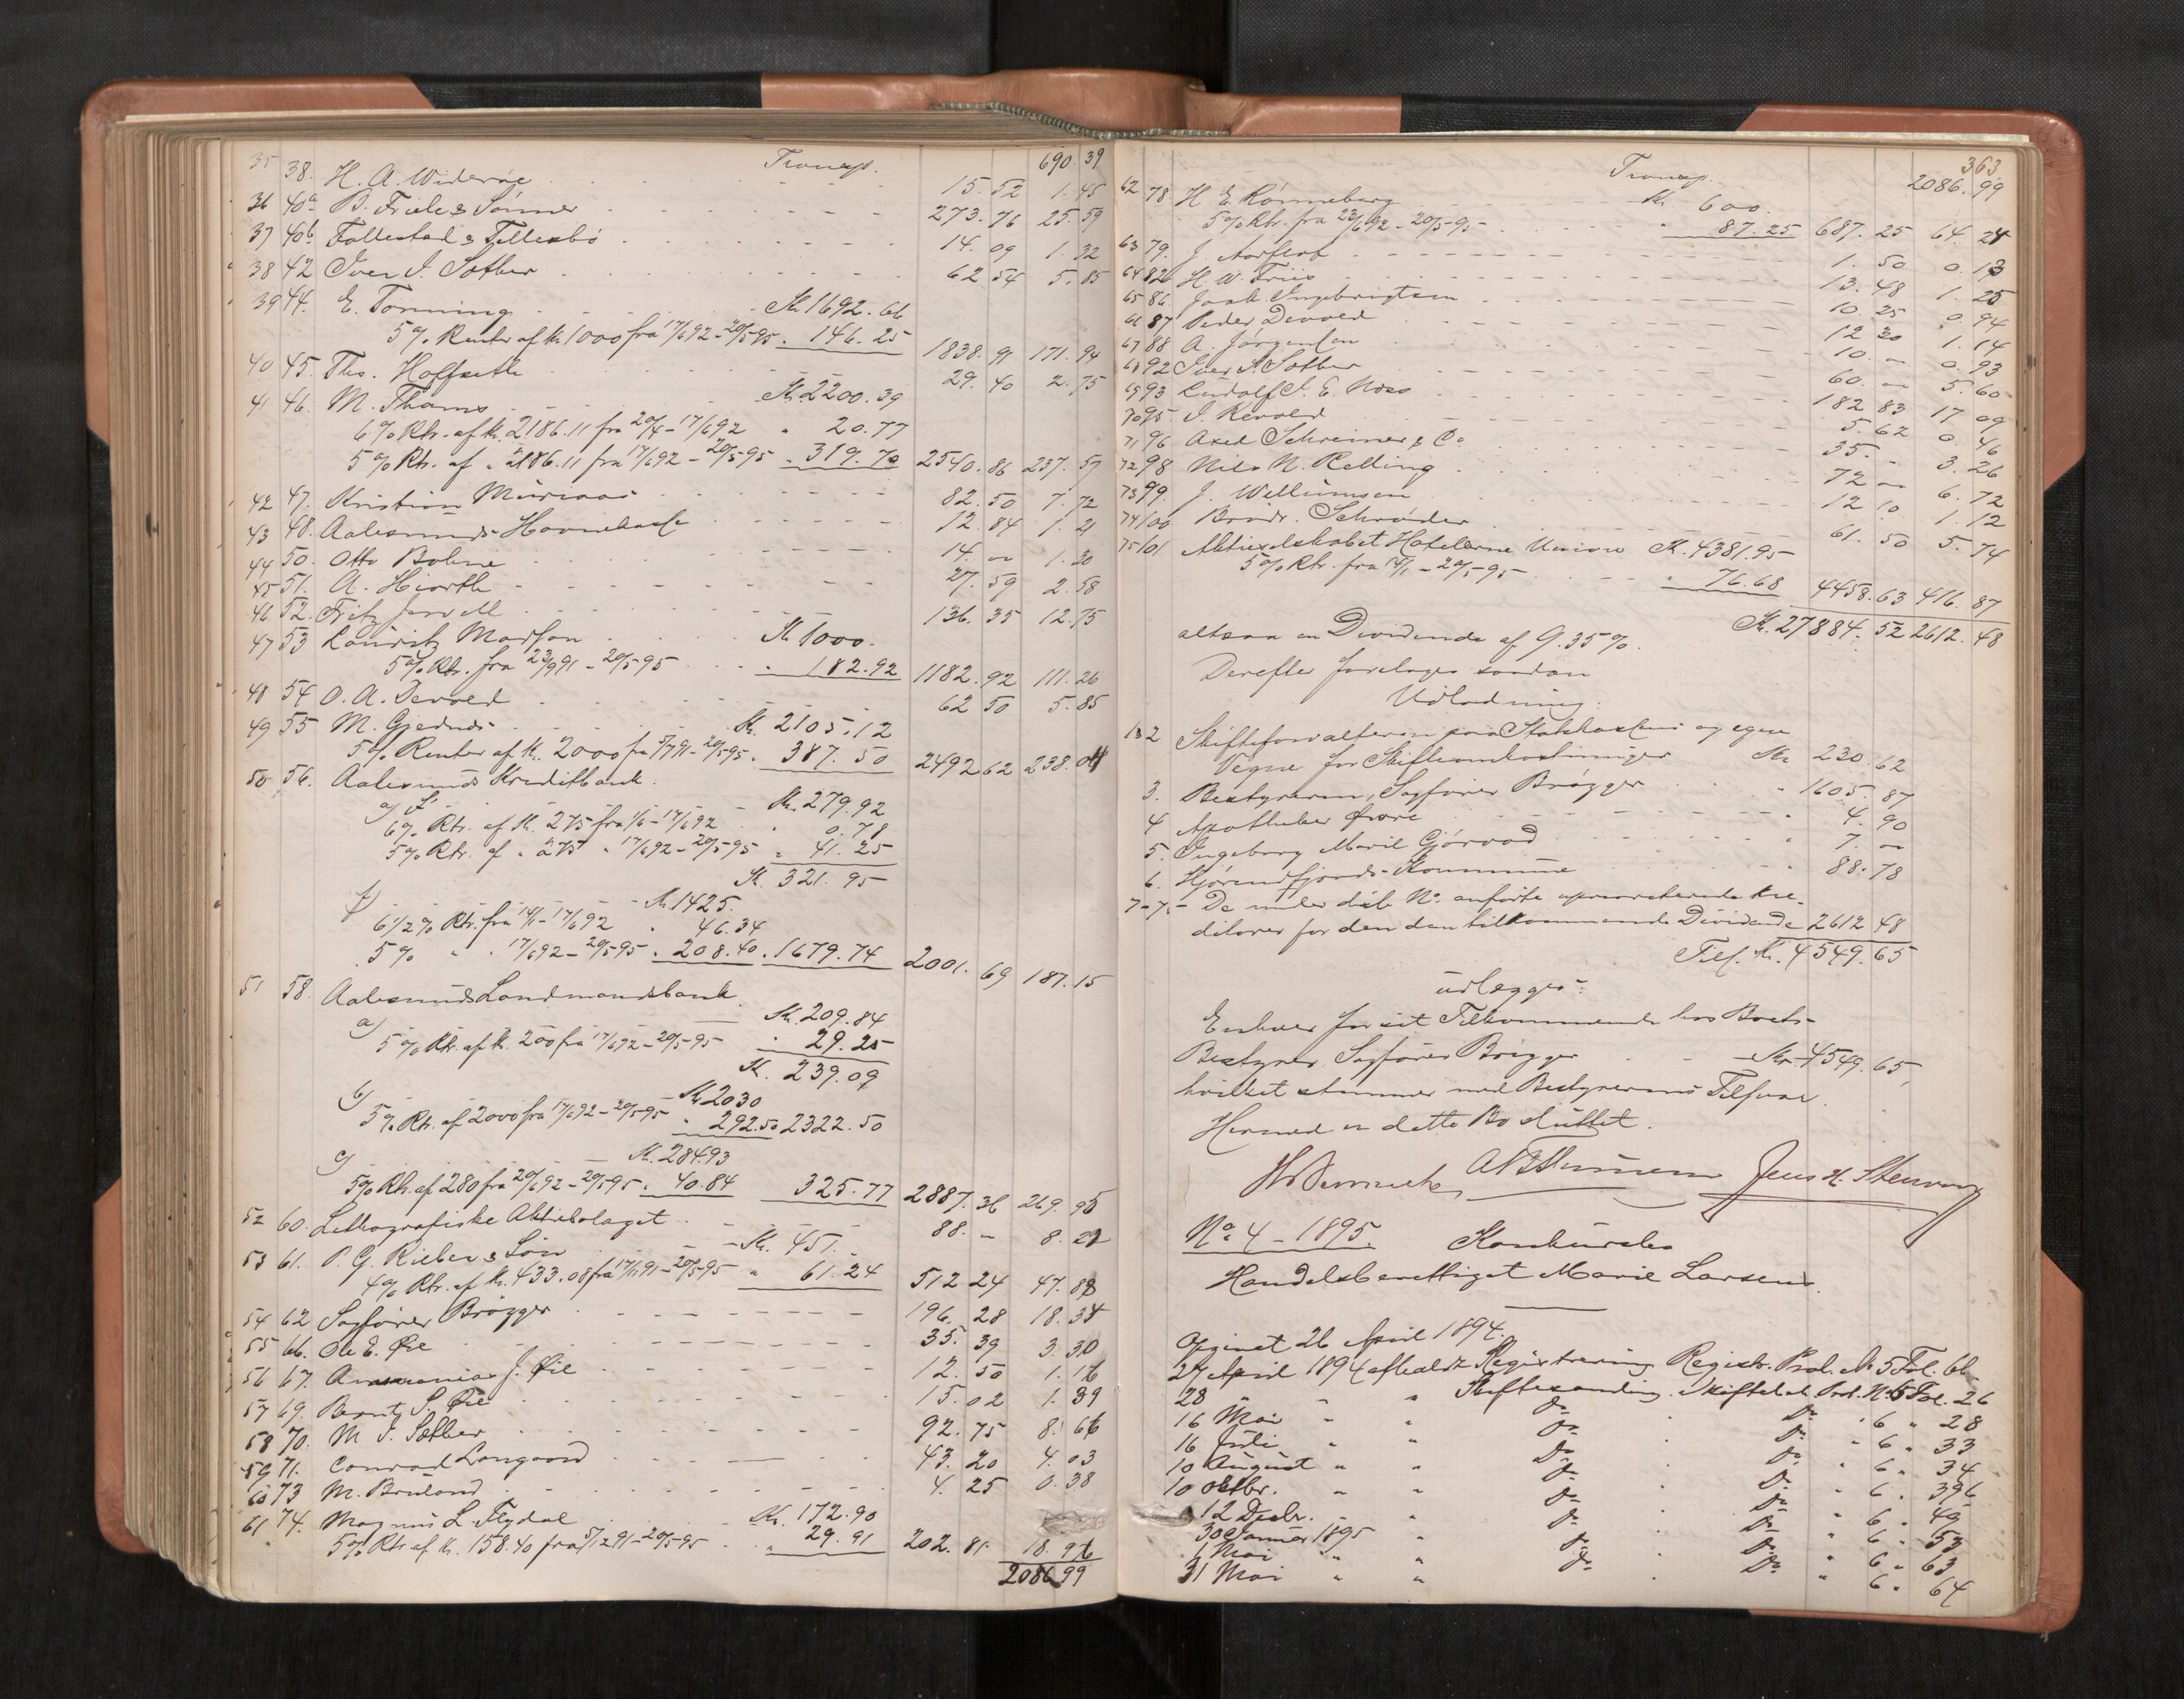 Transp. 690.39
35 38. H. A. Widerøe 15.52 1.45
36 40a B. Friele & Sønner 273.76 25.59
37 40b Follestad & Tellesbø 14.09 1.32
38 42 Iver I. Sæther 62.54 5.85
39 44. E. Tonning Kr. 1692.66
5% Renter af Kr 1000 fra 17/6 92 - 20/5-95. 146.25 1838.91 171.94
40 45. Ths. Hoffseth 29.40 2.75
41 46. M. Thams Kr. 2200.39
6% Rtr. af Kr. 2186.11 fra 20/4 - 17/6 92 " 20.77
5% Rtr. af " 2186.11 fra 17/6 92 - 20/5-95 " 319.70 2540.86 237.57
42 47. Kristian 82.50 7.72
43 48. Aalesunds Havnekasse 12.84 1.21
44 50. Otto Bohne 14 " 1.30
45 51. A. Hiorth 27.59 2.58
46 52. Fritz Jervell 136.35 12.75
47 53 Lauritz Madsen Kr 1000.
5% Rtr. fra 23/9 91 - 20/5-95 " 182.92 1182.92 111.26
48 54 O. A. Devold 62.50 5.85
49 55 M. Gjednes Kr. 2105.12
5% Renter af Kr. 2000 fra 5/7 91 - 20/5-95. 387.50 2492.62 238.04
50 56. Aalesunds Kreditbank.
a) Kr. 279.92
6% Rtr. af Kr. 275 fra 1/6 - 17/6 92 " 0.78
5% Rtr. af " 275 " 17/6 92 - 20/5-95 " 41.25
Kr. 321.95
b) Kr 1425.
6 1/2% Rtr. fra 14/1 - 17/6 92 " 46.34
5% " " 17/6 92 - 20/5 95 " 208.40. 1679.74 2001.69 187.15
51 58. Aalesunds Landmandsbank
a) Kr. 209.84
5% Rtr. af Kr. 200 fra 17/6 92 - 20/5-95 " 29.25
Kr. 239.09
b) Kr 2030
5% Rtr. af 2000 fra 17/6 92 - 20/5-95 " 292.50 2322.50
c) Kr. 284.93
5% Rtr. af 280 fra 20/6 92 - 20/5 95. 40.84 325.77 2887.36 269.95
52 60. Lithografiske Aktiebolaget 88. " 8.22
53 61. P. G. Rieber & Søn Kr. 451.
4% Rtr. af Kr. 433.08 fra 17/11 91 - 20/5-95 " 61.24 512.24 47.88
54 62 Sagfører Brøgger 196.28 18.34
55 66. Ole E. Øie 35.39 3.30
56 67. J. Øie 12.50 1.16
57 69. Bernt S. Øie 15.02 1.39
58 70. M. I. Sæther 92.75 8.66
59 71. Conrad Langaard 43.20 4.03
60 73 M. Bruland 4.25 0.38
61 74. Magnus L. Flydal Kr. 172.90
5% Rtr. af Kr. 158.40 fra 5/12 91 - 20/5-95 " 29.91 202.81. 18.96
2086.99
363
Transp. 2086.99
62 78 H. E. Rønneberg Kr 600.
5% Rtr. fra 23/6 92 - 20/5-95 87.25 687.25 64.24
63 79. J. Aarflot 1.50 0.13
64 82 H. W. Friis 13.48 1.25
65 86 Jacob Ingebrigtsen 10.25 0.94
66 87 Peder Devold 12.30 1.14
67 88 A. Jørgensen 10. " 0.93
68 92 Iver I. Sæther 60. " 5.60
69 93 Rudolf I. E. Moss 182.83 17.09
70 95. I. Revold 5.62 0.46
71 96 Axel Schreiner & Co 35. " 3.26
72 98 Nils N. Relling 72 " 6.72
73 99. J. Wellumsen 12.10 1.12
74 100 Brødr. Schrøder 61.50 5.74
75 101 Aktieselskabet Hotellerne Union Kr. 4381.95
5% Rtr. fra 14/1 - 20/5-95 " 76.68 4458.63 416.87
Kr. 27884.52 2612.48
altsaa en Dividende af 9.35%.
Derefter foretages saadan
Udlodning:
1 & 2 Skifteforvalteren paa Statskassens og egne
Vegne for Skifteomkostninger Kr. 230.62
3. Bestyreren, Sagfører Brøgger " 1605.87
4 Apotheker Øvre " 4.90
5. Ingeborg Marie Gjørvad " 7. "
6. Hjørendfjords Kommune " 88.78
7-75 De under disse No. anførte uprioriterede Kre-
ditorer for den dem tilkommende Dividende 2612.48
Tils. Kr. 4549.65
udlægges:
Enhver for sit Tilkommende hos Boets
Bestyrer Sagfører Brøgger Kr. 4549.65,
hvilket stemmer med Bestyrerens Tilsvar.
Hermed er dette Bo sluttet.
Jens H. Stenvaag
No 4 - 1895. Konkursbo
Handelsberettiget Marie Larsen.
Aabnet 26 April 1894.
27 April 1894 afholdt Registrering Registr. Prot. No 5 Fol. 66
28 " " Skiftesamling Skiftelok. Prot. No. 6 Fol. 26
16 Mai " " Do Do " 6 " 28
16 Juli " " Do Do " 6 " 33
10 August " " Do Do " 6 " 34
10 Oktbr. " " Do Do " 6 " 396
12 Decbr. " " Do Do " 6 " 49
30 Januar 1895 " Do Do " 6 " 53
1 Mai " " Do Do " 6 " 63
31 Mai " " Do Do " 6 " 64